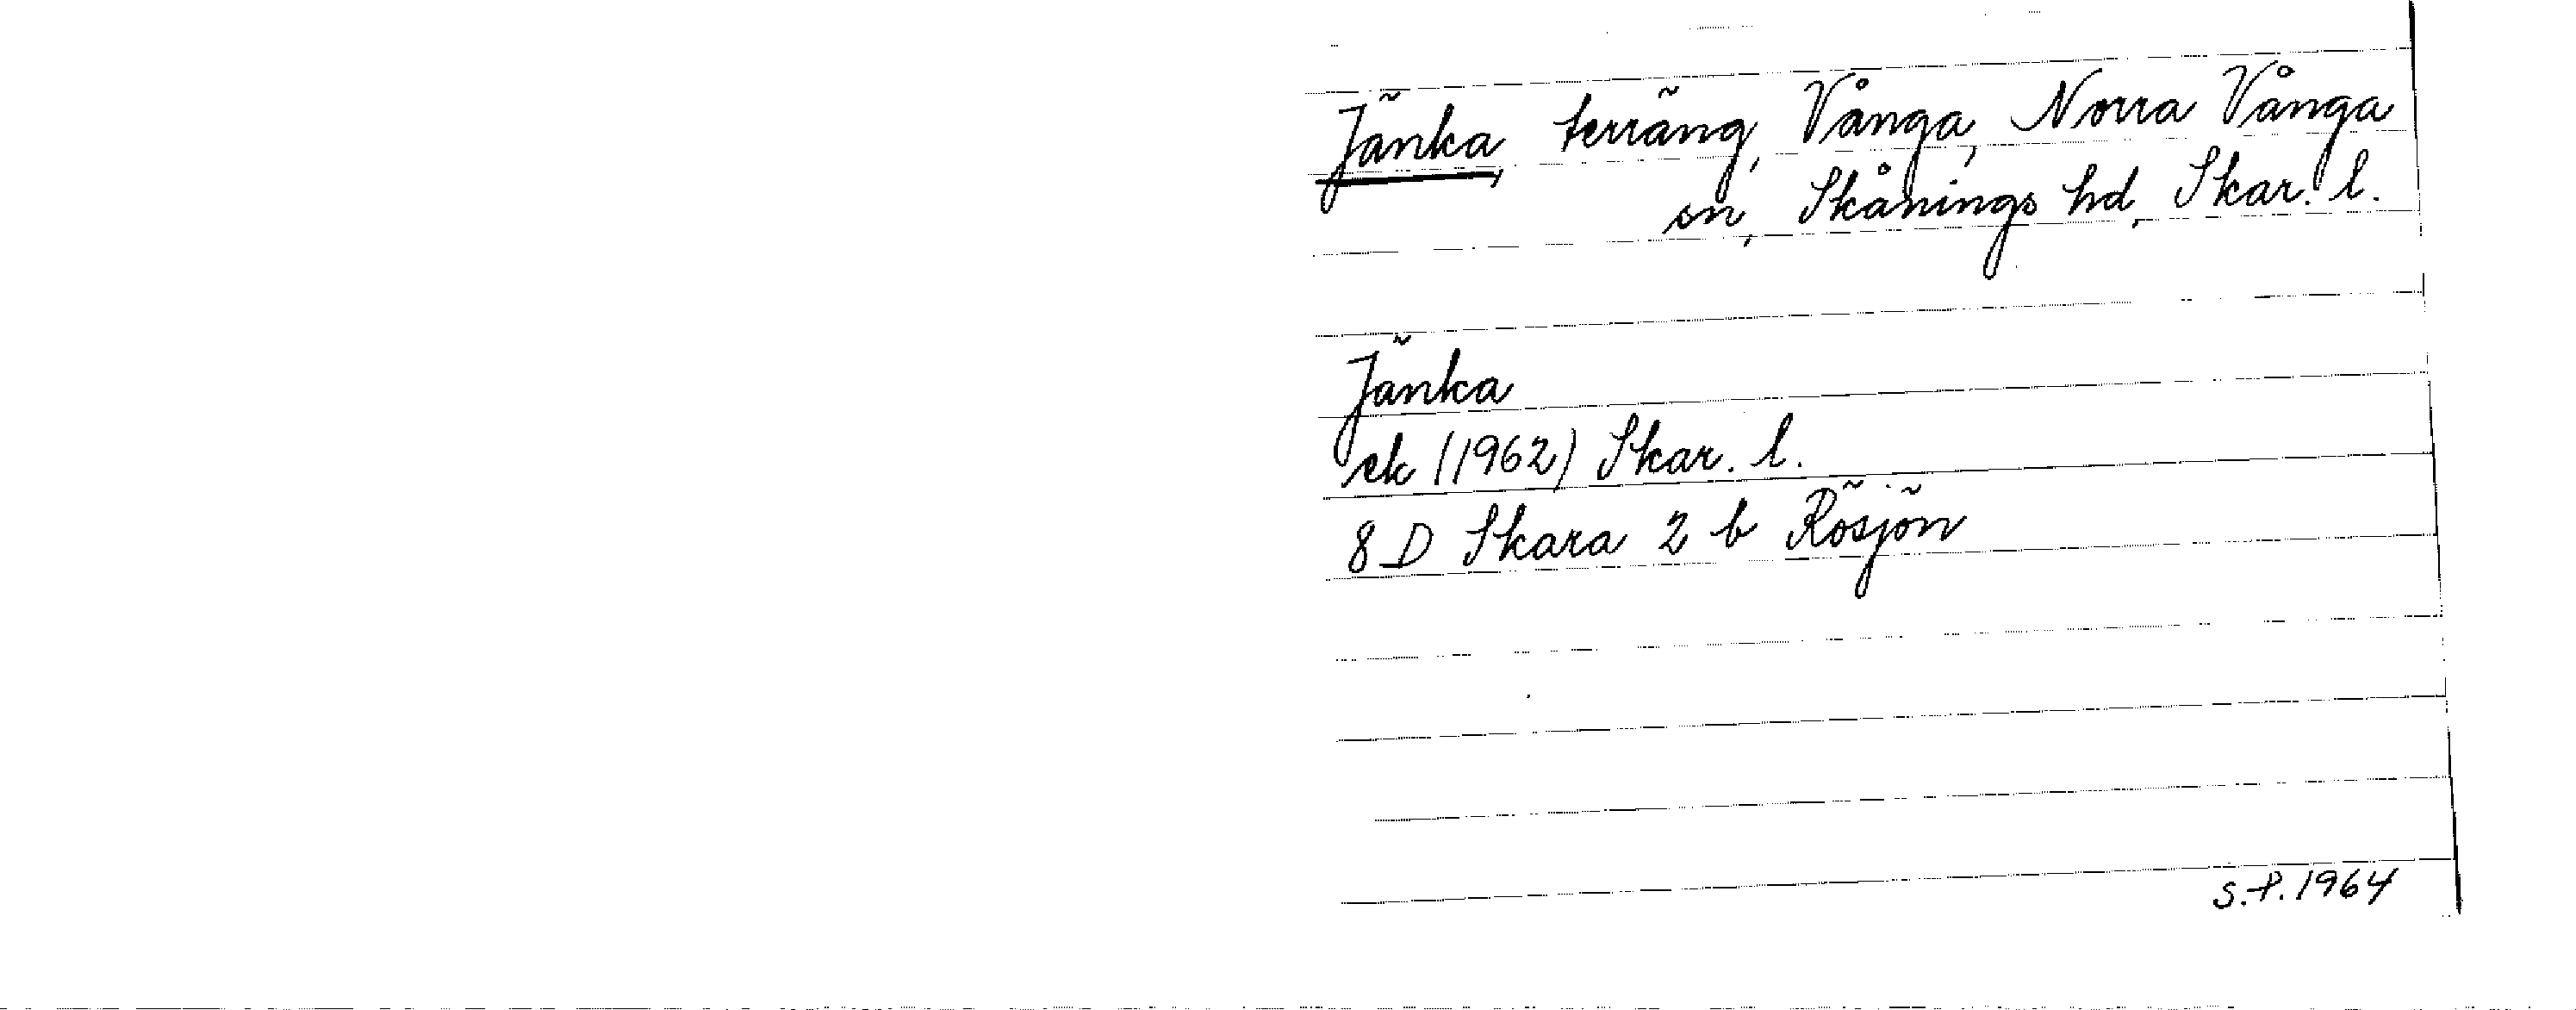 Jänka, terräng, Vånga, Norra Vånga
sn, Skånings hd, Skar. l.
Jänka
ek (1962) Skar. l.
8 D Skara 2 b Rösjön
S.P. 1964